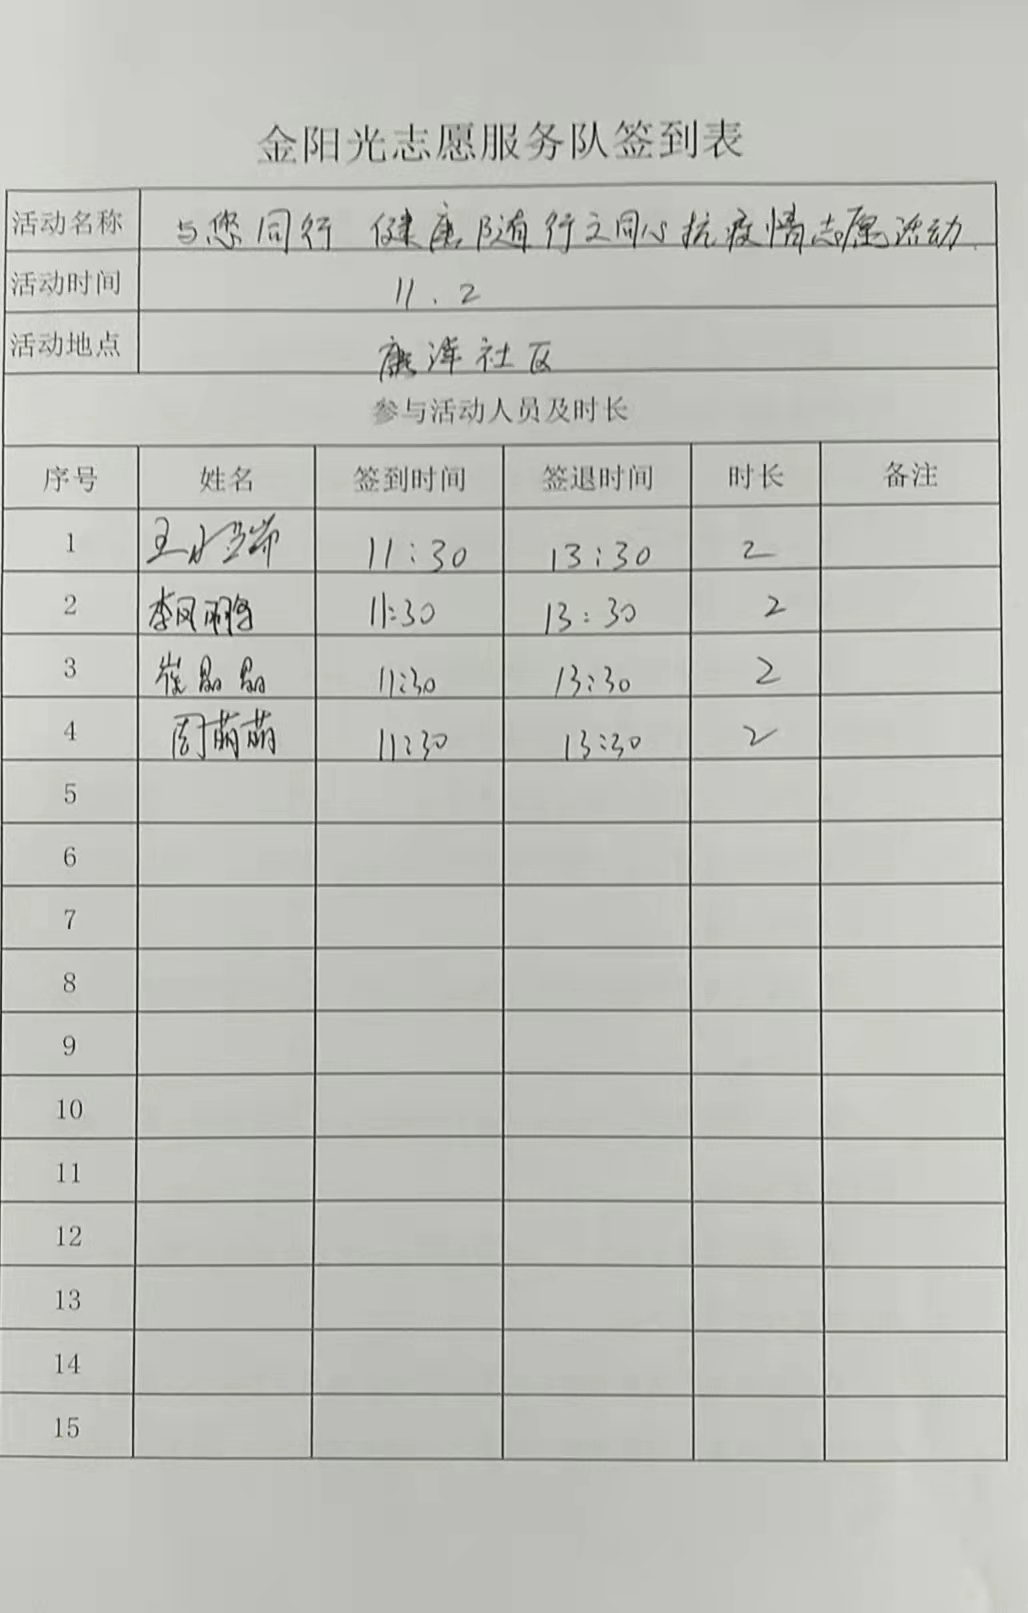 金阳光志愿服务队签到表
活动名称 与您同行 健康随行之同心抗疫情志愿活动
活动时间 11.2
活动地点 康泽社区
参与活动人员及时长
序号 姓名 签到时间 签退时间 时长 备注
1 王 11:30 13:30 2
2 李凤鹏 11:30 13:30 2
3 崔晶晶 11:30 13:30 2
4 周萌萌 11:30 13:30 2
5
6
7
8
9
10
11
12
13
14
15